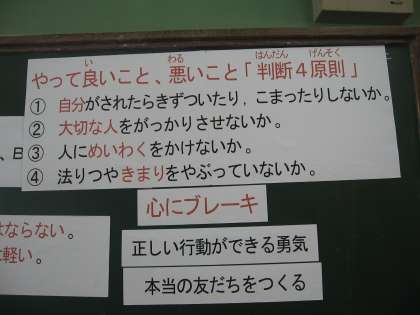 やって良いこと、悪いこと「判断４原則」
① 自分がされたらきずついたり，こまったりしないか。
② 大切な人をがっかりさせないか。
③ 人にめいわくをかけないか。
④ 法りつやきまりをやぶっていないか。
、B
心にブレーキ
はならない。
は軽い。
正しい行動ができる勇気
本当の友だちをつくる